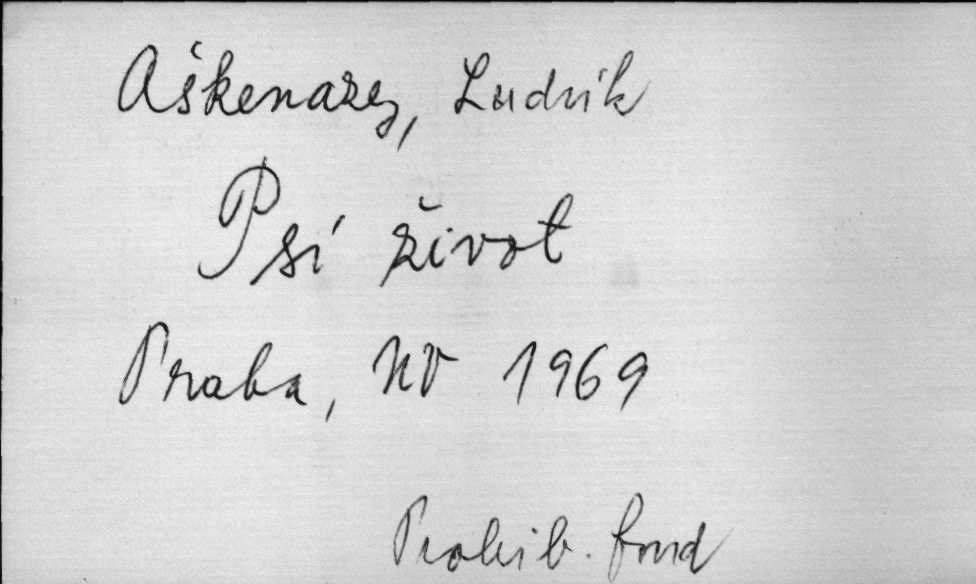 Aškenazy, Ludvík
Psí život
Praha, NV 1969
Prohib. fond